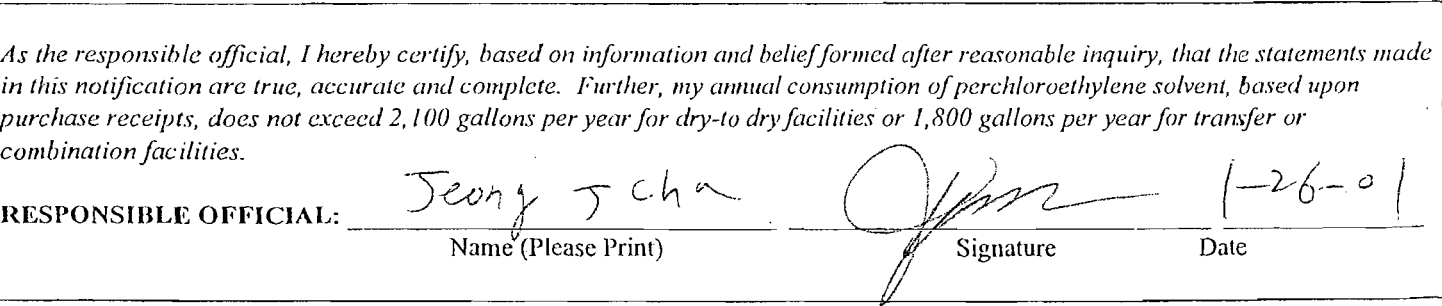 As the responsible official, I hereby certify, based on information and belief formed after reasonable inquiry, that the statements made
in this notification are true, accurate and complete. Further, my annual consumption of perchloroethylene solvent, based upon
purchase receipts, does not exceed 2,100 gallons per year for dry-to dry facilities or 1,800 gallons per year for transfer or
combination facilities.
RESPONSIBLE OFFICIAL: Jeong J Cha 1-26-01
Name (Please Print) Signature Date